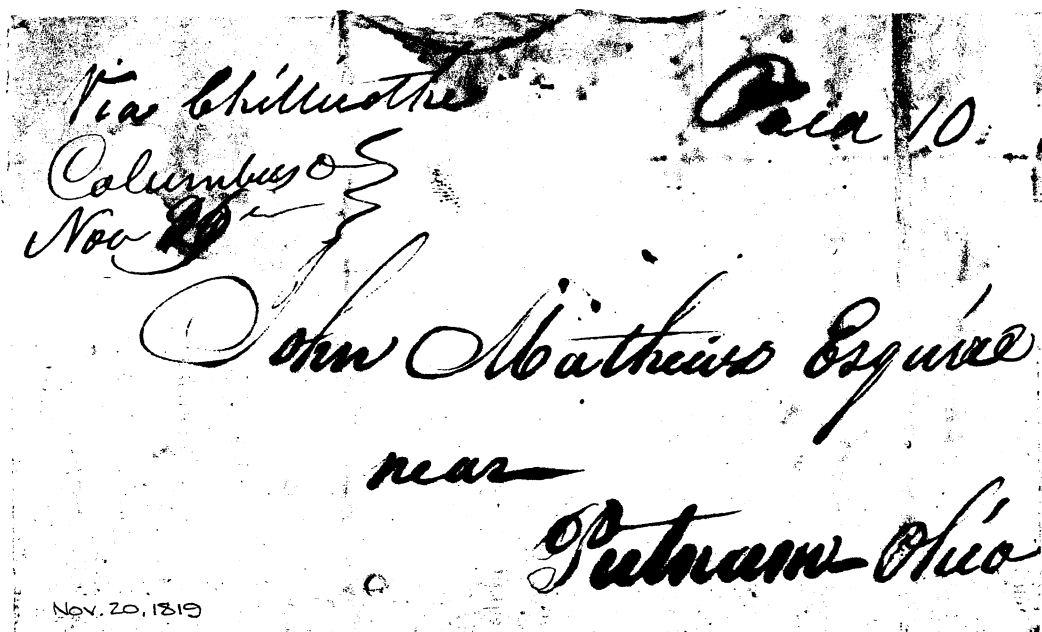 Via Chillicothe
Paid 10
Columbus O
Nov 20th
John Mathews Esquire
near
Putnam Ohio
Nov. 20, 1819